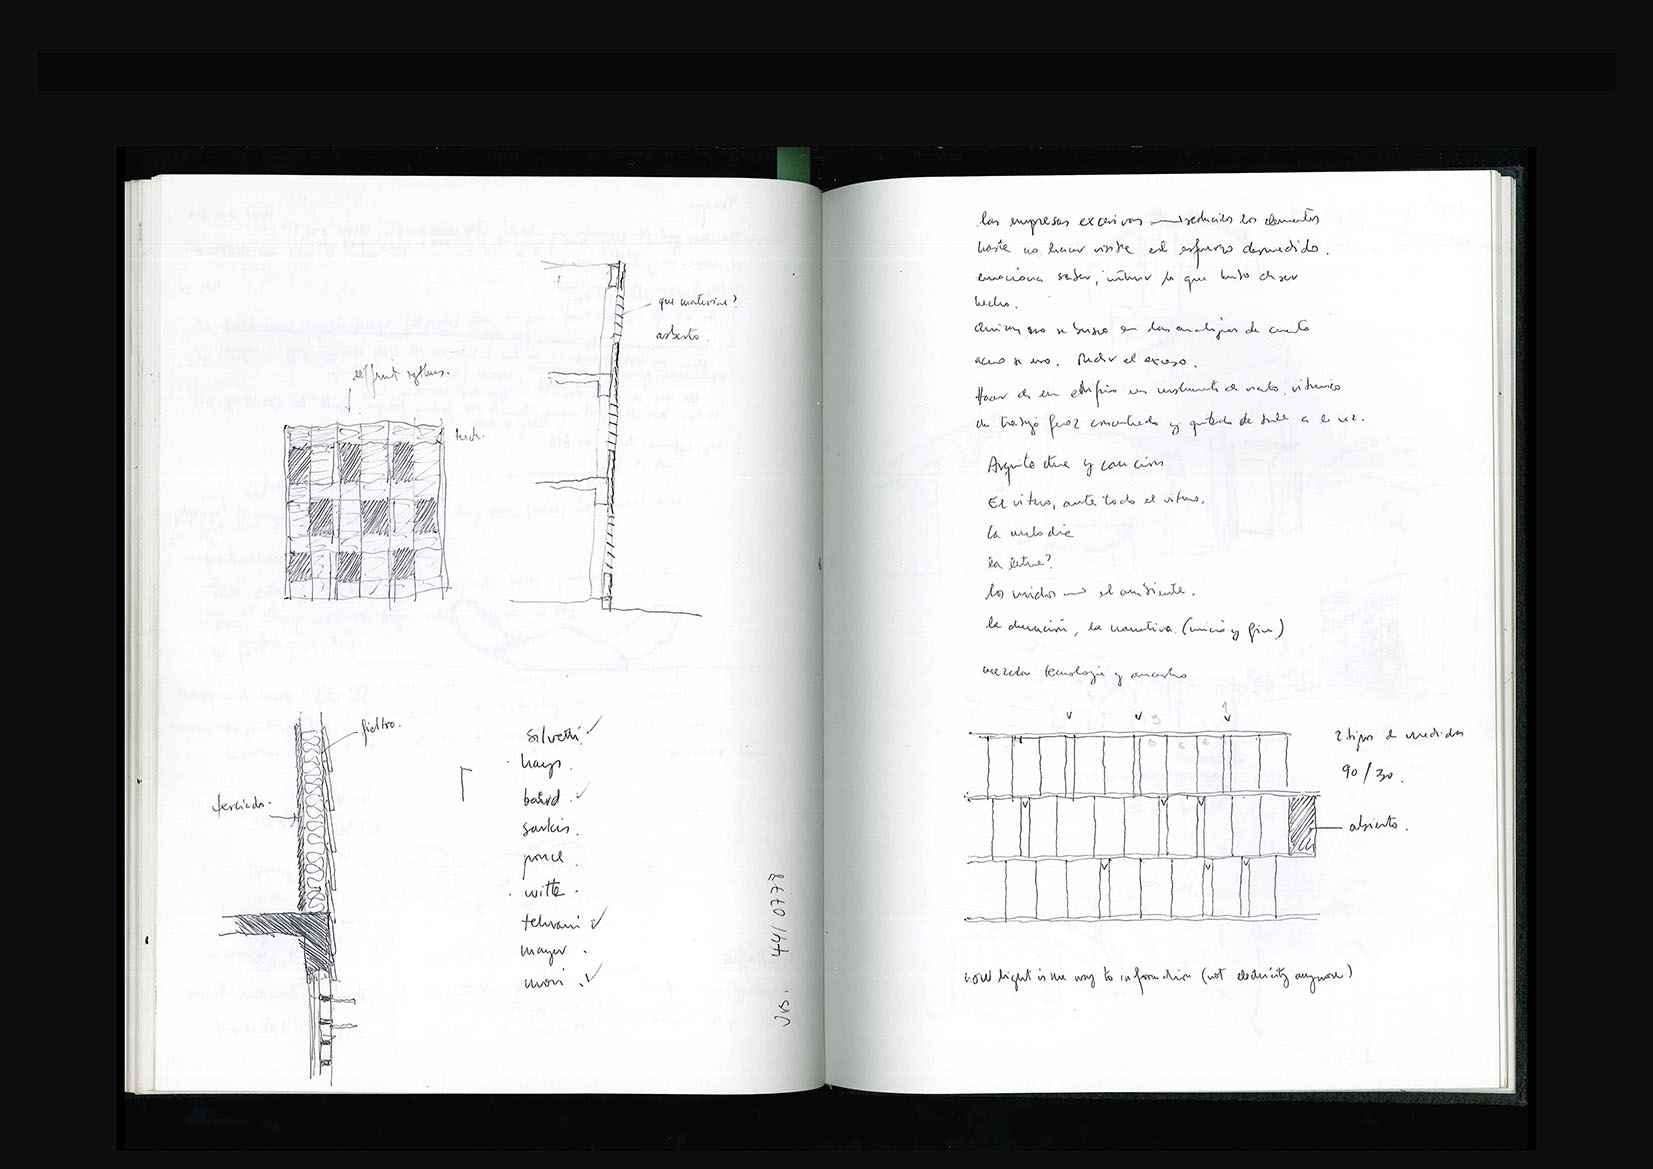 que material?
asbesto.
fieltro.
terciado.
silvetti.
hays.
baird.
sarkis.
ponce.
witte.
tehrani
mayer.
mori.
Urs. 44/0778
las empresas excesivas reducidos los elementos
hasta no hacer visible el esfuerzo desmedido.
emociona saber, intuir lo que hubo de ser
hecho.
quizas no se busco en las analogias de cuanto
acero se uso. Medir el exceso.
Hacer de un edificio un instrumento de viento,
un trabajo feroz concentrado y de a la vez.
Arquitectura y cancion
El ritmo, ante todo el ritmo.
la melodia
la letra?
los ruidos → el ambiente.
la duracion, la narrativa (inicio y fin)
mezclar tecnologia y ancestro
2 tipos de medidas
90/30.
abierto.
now light is the way to information (not electricity anymore)